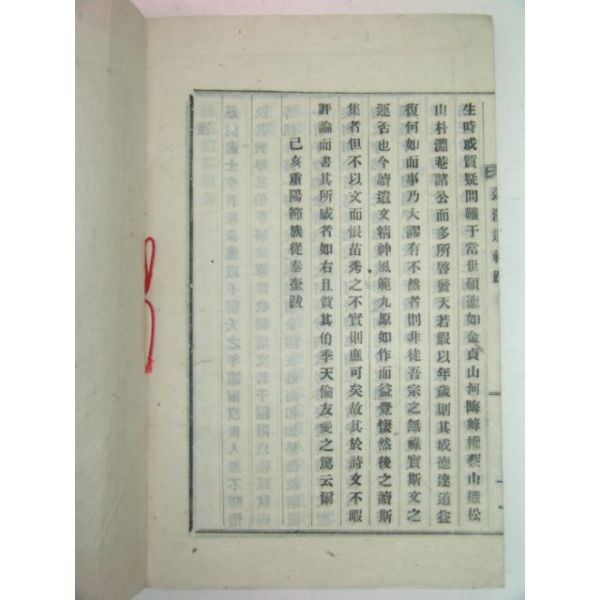 生時或質疑問難于當世碩德如金貞山河晦峰權蔡山權松
山朴淵菴諸公而多所啓發天若假以年歲則其成德達道益
復何如而事乃大謬有不然者則非徒吾宗之無祿實斯文之
運否也今讀遺文精神風範九原如作而益覺悽然後之讀斯
集者但不以文而恨苗秀之不實則庶可矣故其於詩文不暇
評論而書其所感者如右且賀其伯季天倫友愛之篤云爾
己亥重陽節族從泰奎跋